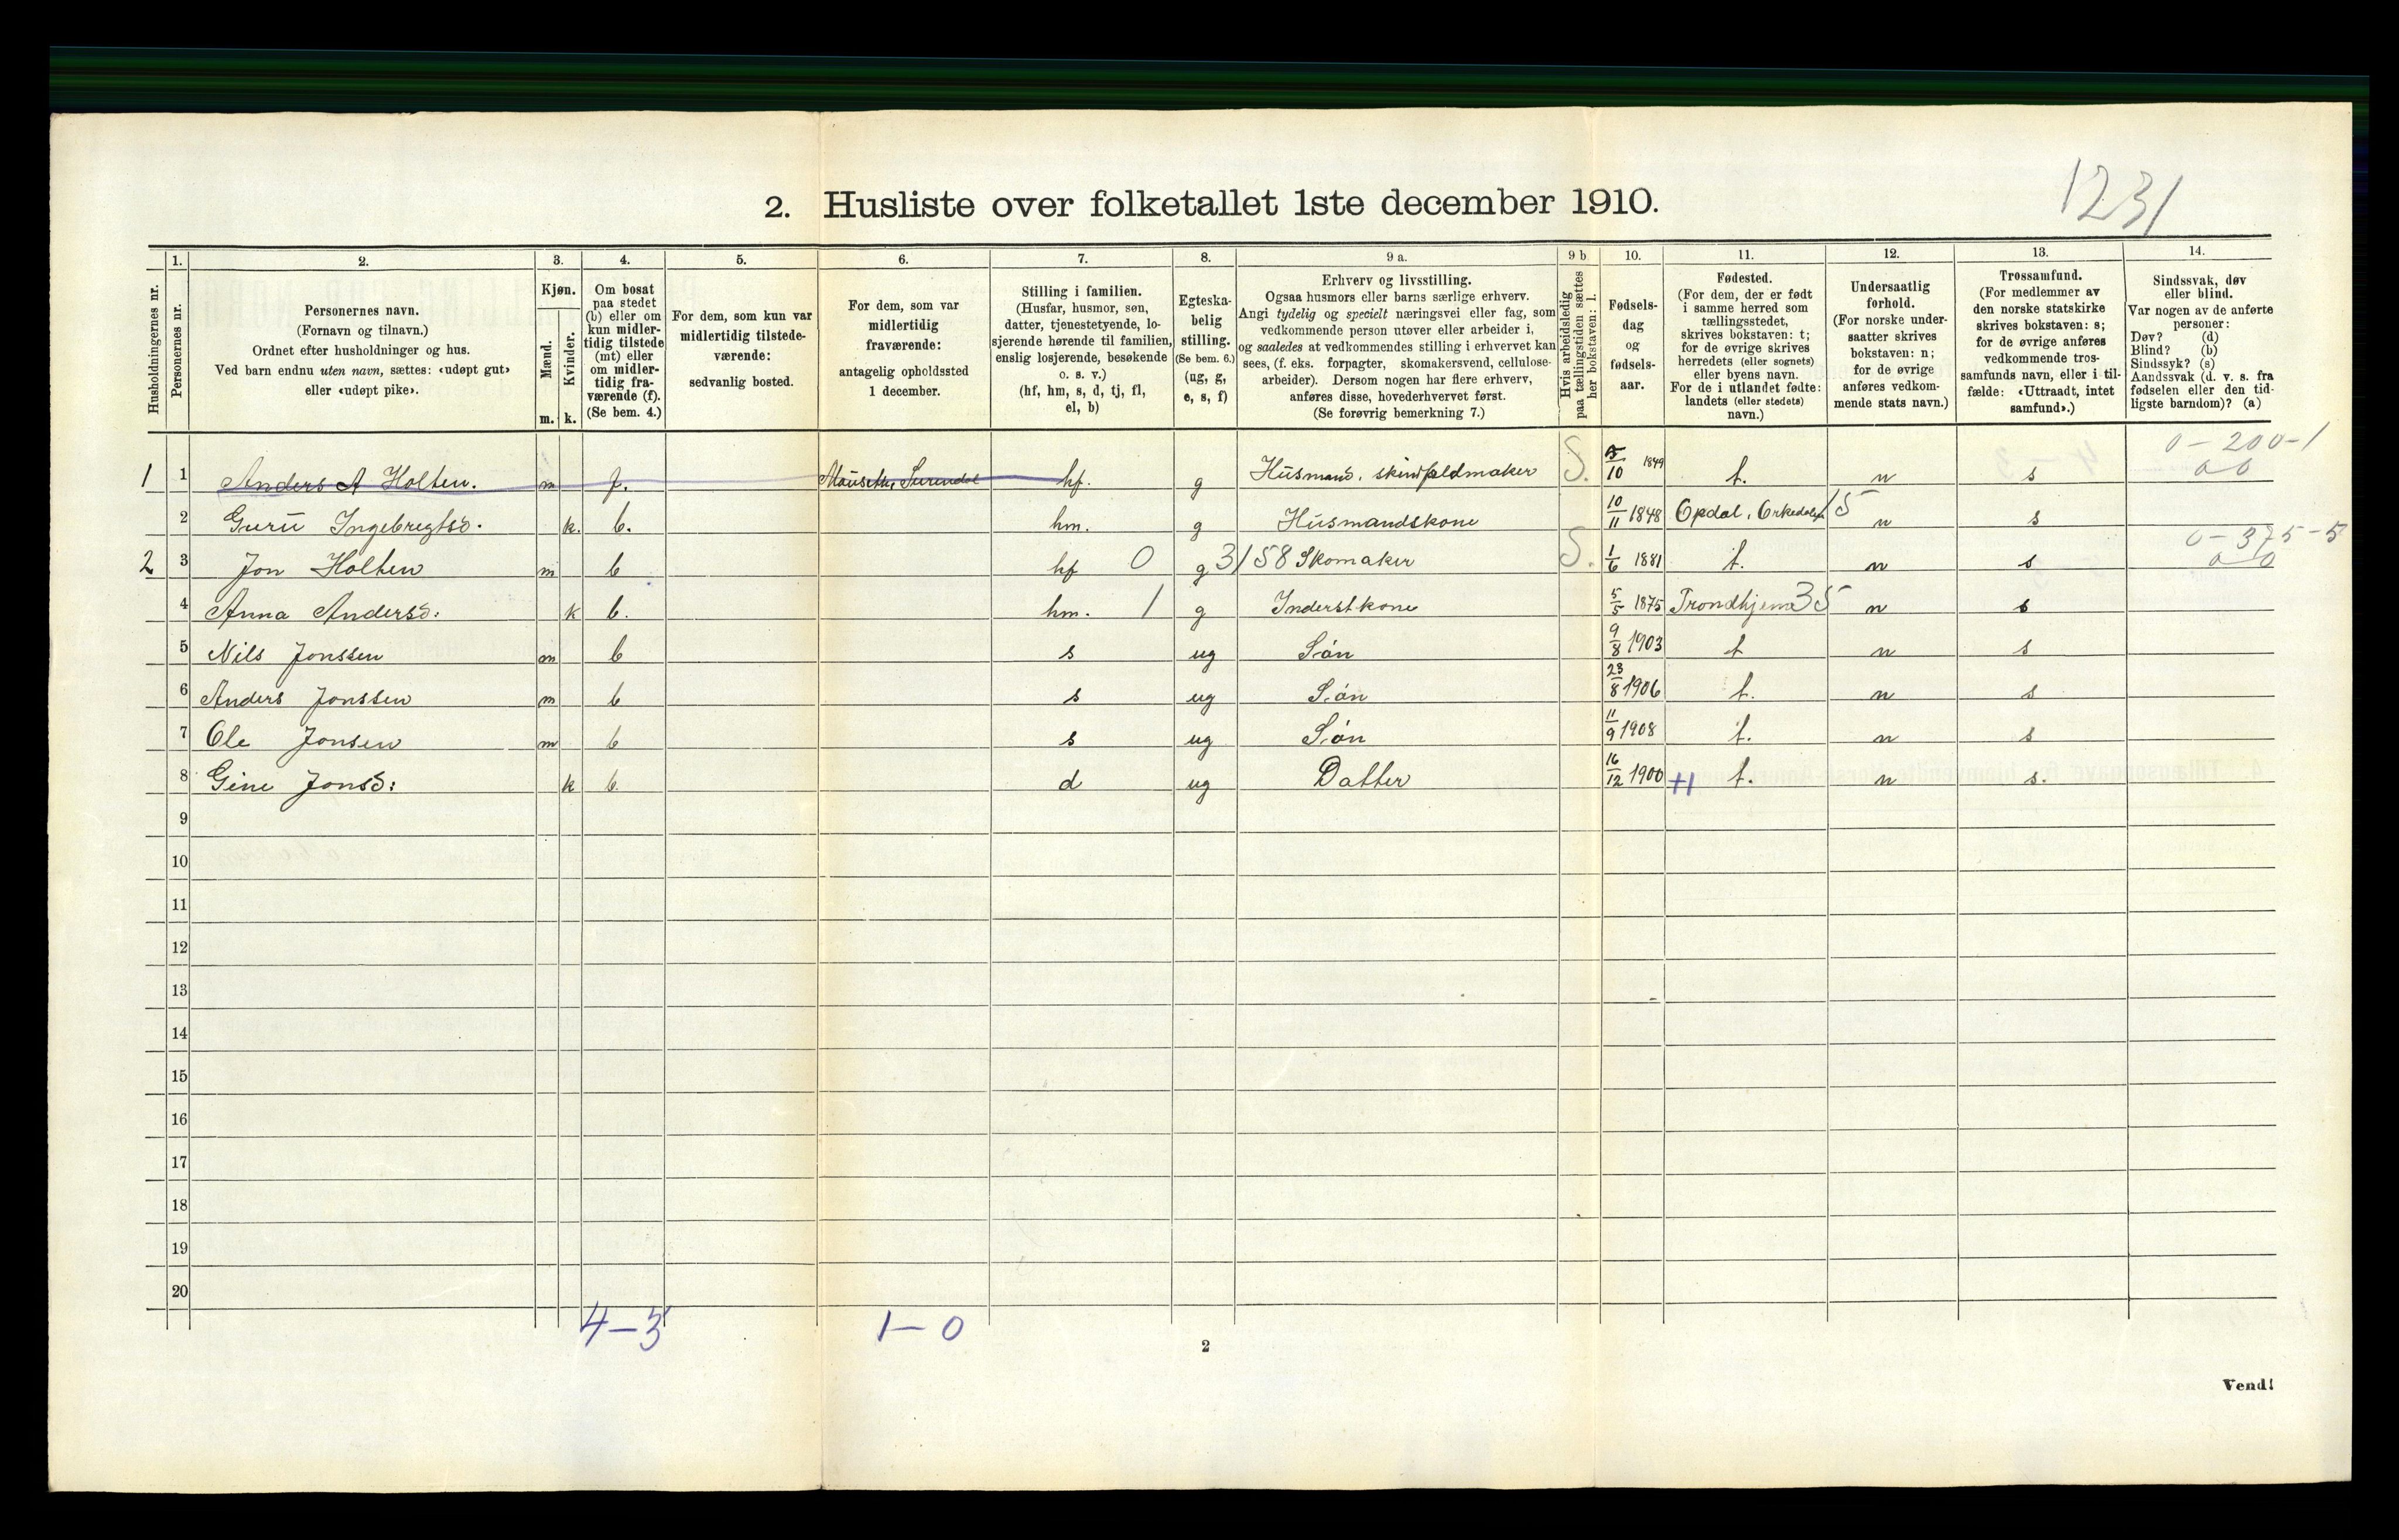 1231
2. Husliste over folketallet 1ste december 1910.
1. 2. 3. 4. 5. 6. 7. 8. 9 a. 9 b 10. 11. 12. 13. 14.
Husholdningernes nr.
Personernes nr.
Personernes navn.
(Fornavn og tilnavn.)
Ordnet efter husholdninger og hus.
Ved barn endnu uten navn, sættes: «udøpt gut»
eller «udøpt pike».
Kjøn.
Mænd.
Kvinder.
m. k.
Om bosat
paa stedet
(b) eller om
kun midler-
tidig tilstede
(mt) eller
om midler-
tidig fra-
værende (f).
(Se bem. 4.)
For dem, som kun var
midlertidig tilstede-
værende:
sedvanlig bosted.
For dem, som var
midlertidig
fraværende:
antagelig opholdssted
1 december.
Stilling i familien.
(Husfar, husmor, søn,
datter, tjenestetyende, lo-
sjerende hørende til familien,
enslig losjerende, besøkende
o. s. v.)
(hf, hm, s, d, tj, fl,
el, b)
Egteska-
belig
stilling.
(Se bem. 6.)
(ug, g,
e, s, f)
Erhverv og livsstilling.
Ogsaa husmors eller barns særlige erhverv.
Angi tydelig og specielt næringsvei eller fag, som
vedkommende person utøver eller arbeider i,
og saaledes at vedkommendes stilling i erhvervet kan
sees, (f. eks. forpagter, skomakersvend, cellulose-
arbeider). Dersom nogen har flere erhverv,
anføres disse, hovederhvervet først.
(Se forøvrig bemerkning 7.)
Hvis arbeidsledig
paa tællingstiden sættes
her bokstaven: l.
Fødsels-
dag
og
fødsels-
aar.
Fødested.
(For dem, der er født
i samme herred som
tællingsstedet,
skrives bokstaven: t;
for de øvrige skrives
herredets (eller sognets)
eller byens navn.
For de i utlandet fødte:
landets (eller stedets)
navn.)
Undersaatlig
forhold.
(For norske under-
saatter skrives
bokstaven: n;
for de øvrige
anføres vedkom-
mende stats navn.)
Trossamfund.
(For medlemmer av
den norske statskirke
skrives bokstaven: s;
for de øvrige anføres
vedkommende tros-
samfunds navn, eller i til-
fælde: «Uttraadt, intet
samfund».)
Sindssvak, døv
eller blind.
Var nogen av de anførte
personer:
Døv? (d)
Blind? (b)
Sindssyk? (s)
Aandssvak (d. v. s. fra
fødselen eller den tid-
ligste barndom)? (a)
1 1 Anders A Holten. m f. Surendal hf. g Husmand, skindfeldmaker S. 5/10 1849 t. n s 0-200-1 0 0
2 Guru Ingebregtsd. k. b. hm. g Husmandskone 10/11 1848 Opdal, Orkedalen 15 n s
2 3 Jon Holten m b hf 0 g 3158 Skomaker S. 1/6 1881 t. n s 0-375-5 0 0
4 Anna Andersd: k b. hm. 1 g Inderstkone 5/5 1875 Trondhjem 35 n s
5 Nils Jonssen m b s ug Søn 9/8 1903 t n s
6 Anders Jonssen m b s ug Søn 23/8 1906 t. n s
7 Ole Jonsen m b s ug Søn 11/9 1908 t. n s
8 Gine Jonsd: k b. d ug Datter 16/12 1900 +1 t. n s.
9
10
11
12
13
14
15
16
17
18
19
20
4-3 1-0
2
Vend!